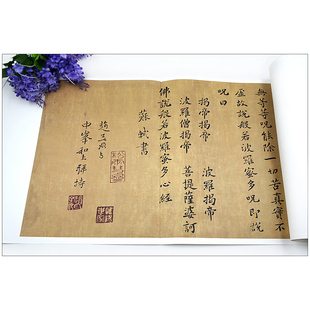 無等等呪能除一切苦真實不
虛故說般若波羅蜜多呪即說
呪曰
揭帝揭帝 波羅揭帝
波羅僧揭帝 菩提薩婆訶
佛說般若波羅蜜多心經
蘇軾書
中峯和上 持